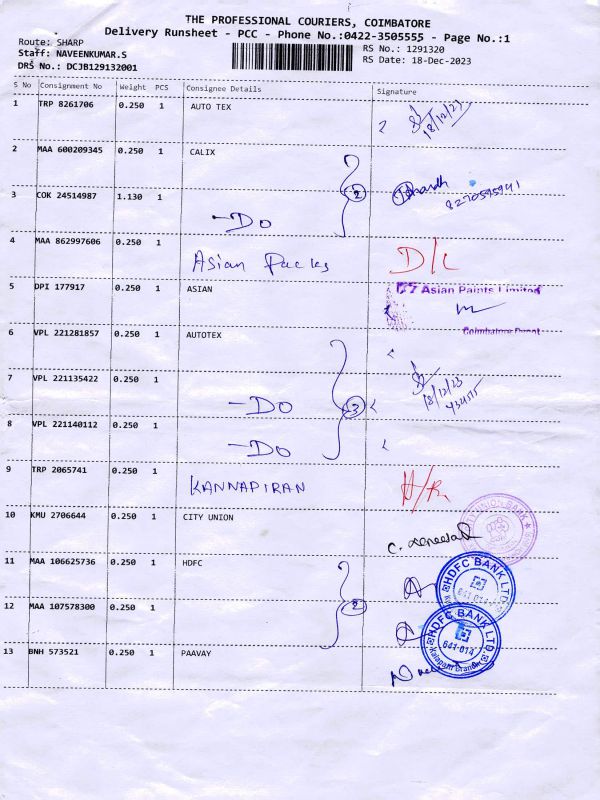 THE PROFESSIONAL COURIERS, COIMBATORE
Delivery Runsheet - PCC - Phone No.:0422-3505555 - Page No.:1
Route: SHARP
RS No.: 1291320
Staff: NAVEENKUMAR.S
RS Date: 18-Dec-2023
DRS No.: DCJB129132001
S No Consignment No Weight PCS Consignee Details Signature
1 TRP 8261706 0.250 1 AUTO TEX
18/12/23
2 MAA 600209345 0.250 1 CALIX
3 COK 24514987 1.130 1 -Do 2
8270595941
4 MAA 862997606 0.250 1 Asian Packs D/L
5 DPI 177917 0.250 1 ASIAN
Asian Paints Limited
Coimbatore Depot
6 VPL 221281857 0.250 1 AUTOTEX
7 VPL 221135422 0.250 1 -Do 3
18/12/23
8 VPL 221140112 0.250 1 -Do
9 TRP 2065741 0.250 1 KANNAPIRAN
10 KMU 2706644 0.250 1 CITY UNION
UNION BANK
11 MAA 106625736 0.250 1 HDFC
HDFC BANK LTD
641-014
12 MAA 107578300 0.250 1 2
HDFC BANK LTD
641-014
Kalapatti Branch
13 BNH 573521 0.250 1 PAAVAY